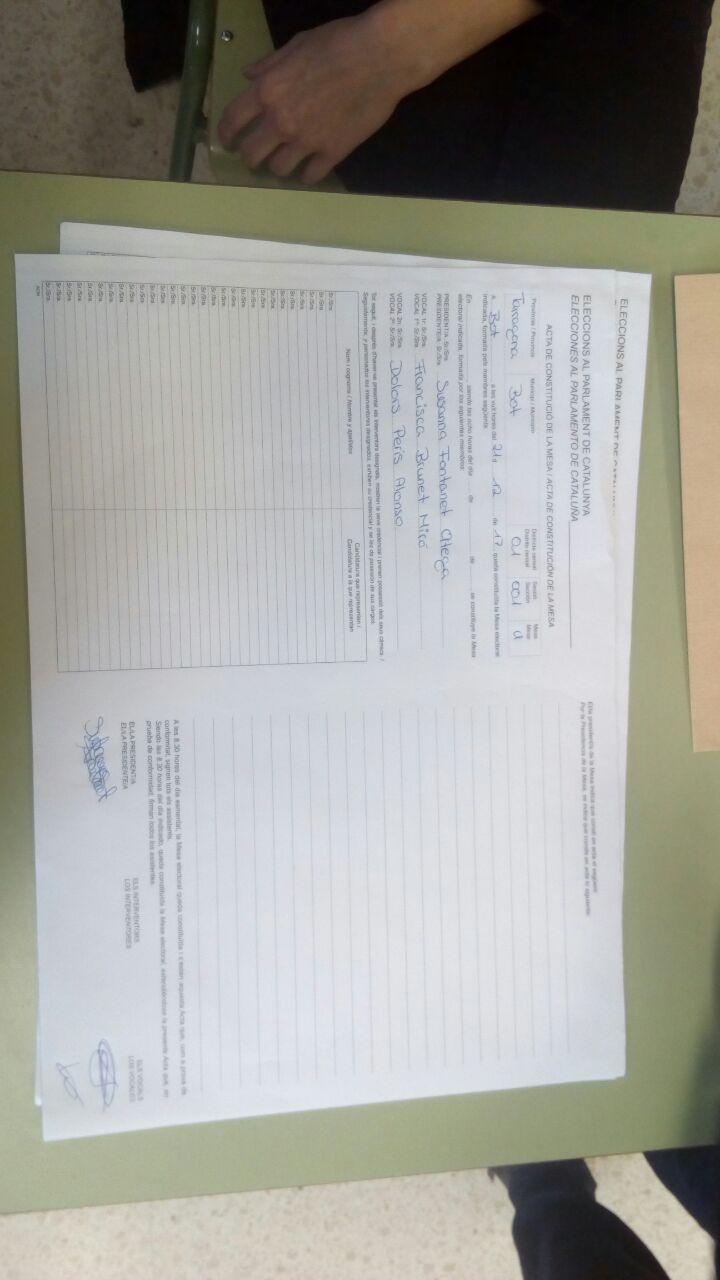 ELECCIONS AL PARLAMENT DE CATALUNYA
ELECCIONS AL PARLAMENT DE CATALUNYA
ELECCIONES AL PARLAMENTO DE CATALUÑA
ACTA DE CONSTITUCIÓ DE LA MESA / ACTA DE CONSTITUCIÓN DE LA MESA
Província / Provincia Municipi / Municipio Districte censal Secció Mesa
Distrito censal Sección Mesa
Tarragona Bot 01 001 U
A Bot a les vuit hores del 21 12 de 17, queda constituïda la Mesa electoral
indicada, formada pels membres següents:
En siendo las ocho horas del día de de , se constituye la Mesa
electoral indicada, formada por los siguientes miembros:
PRESIDENT/A: Sr./Sra.
PRESIDENTE/A: Sr./Sra. Susanna Fontanet
VOCAL 1r: Sr./Sra.
VOCAL 1º: Sr./Sra. Francisca Brunet Miró
VOCAL 2n: Sr./Sra.
VOCAL 2º: Sr./Sra. Dolors Peris Alonso
Tot seguit, i després d'haver-se presentat els interventors designats, mostren la seva credencial i prenen possessió dels seus càrrecs. /
Seguidamente, y personados los interventores designados, exhiben su credencial y se les da posesión de sus cargos.
Nom i cognoms / Nombre y apellidos Candidatura que representen /
Candidatura a la que representan
Sr./Sra.
Sr./Sra.
Sr./Sra.
Sr./Sra.
Sr./Sra.
Sr./Sra.
Sr./Sra.
Sr./Sra.
Sr./Sra.
Sr./Sra.
Sr./Sra.
Sr./Sra.
Sr./Sra.
Sr./Sra.
Sr./Sra.
Sr./Sra.
Sr./Sra.
Sr./Sra.
Sr./Sra.
Sr./Sra.
Sr./Sra.
Sr./Sra.
Sr./Sra.
El/la president/a de la Mesa indica que consti en acta el següent:
Por la Presidencia de la Mesa, se indica que conste en acta lo siguiente:
A les 8.30 hores del dia esmentat, la Mesa electoral queda constituïda i s'estén aquesta Acta que, com a prova de
conformitat, signen tots els assistents.
Siendo las 8.30 horas del día indicado, queda constituida la Mesa electoral, extendiéndose la presente Acta que, en
prueba de conformidad, firman todos los asistentes.
EL/LA PRESIDENT/A ELS INTERVENTORS ELS VOCALS
EL/LA PRESIDENTE/A LOS INTERVENTORES LOS VOCALES